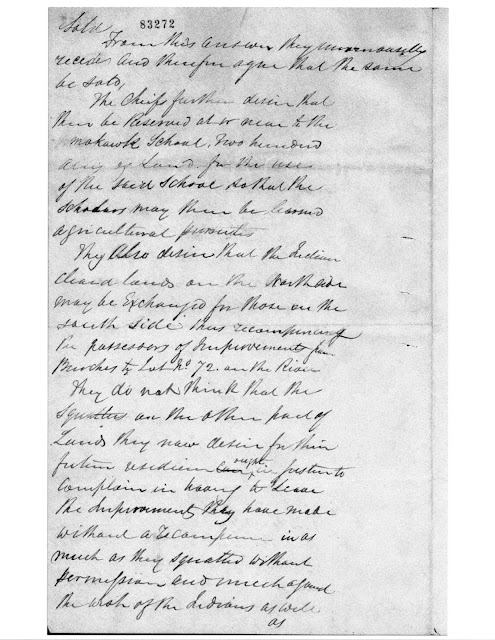 Sold 83272
From this answer they unanimously
recede and therefore agree that the same
be sold,
The Chiefs further desire that
there be Reserved at or near to the
Mohawk School, two hundred
acres of Land for the use
of the said School so that the
Scholars may there be learned
agricultural pursuits
They Also desire that the Indian
cleared lands on the North side
may be Exchanged for those on the
South side thus recompensing
the possessors of Improvements from
Burches to Lot No 72. on the River
They do not think that the
Squatters on the other part of
Lands they now desire for their
future residence ought in justice to
Complain in having to Leave
the Improvements they have made
without a recompense in as
much as they squatted without
permission and much against
the wish of the Indians as well
as